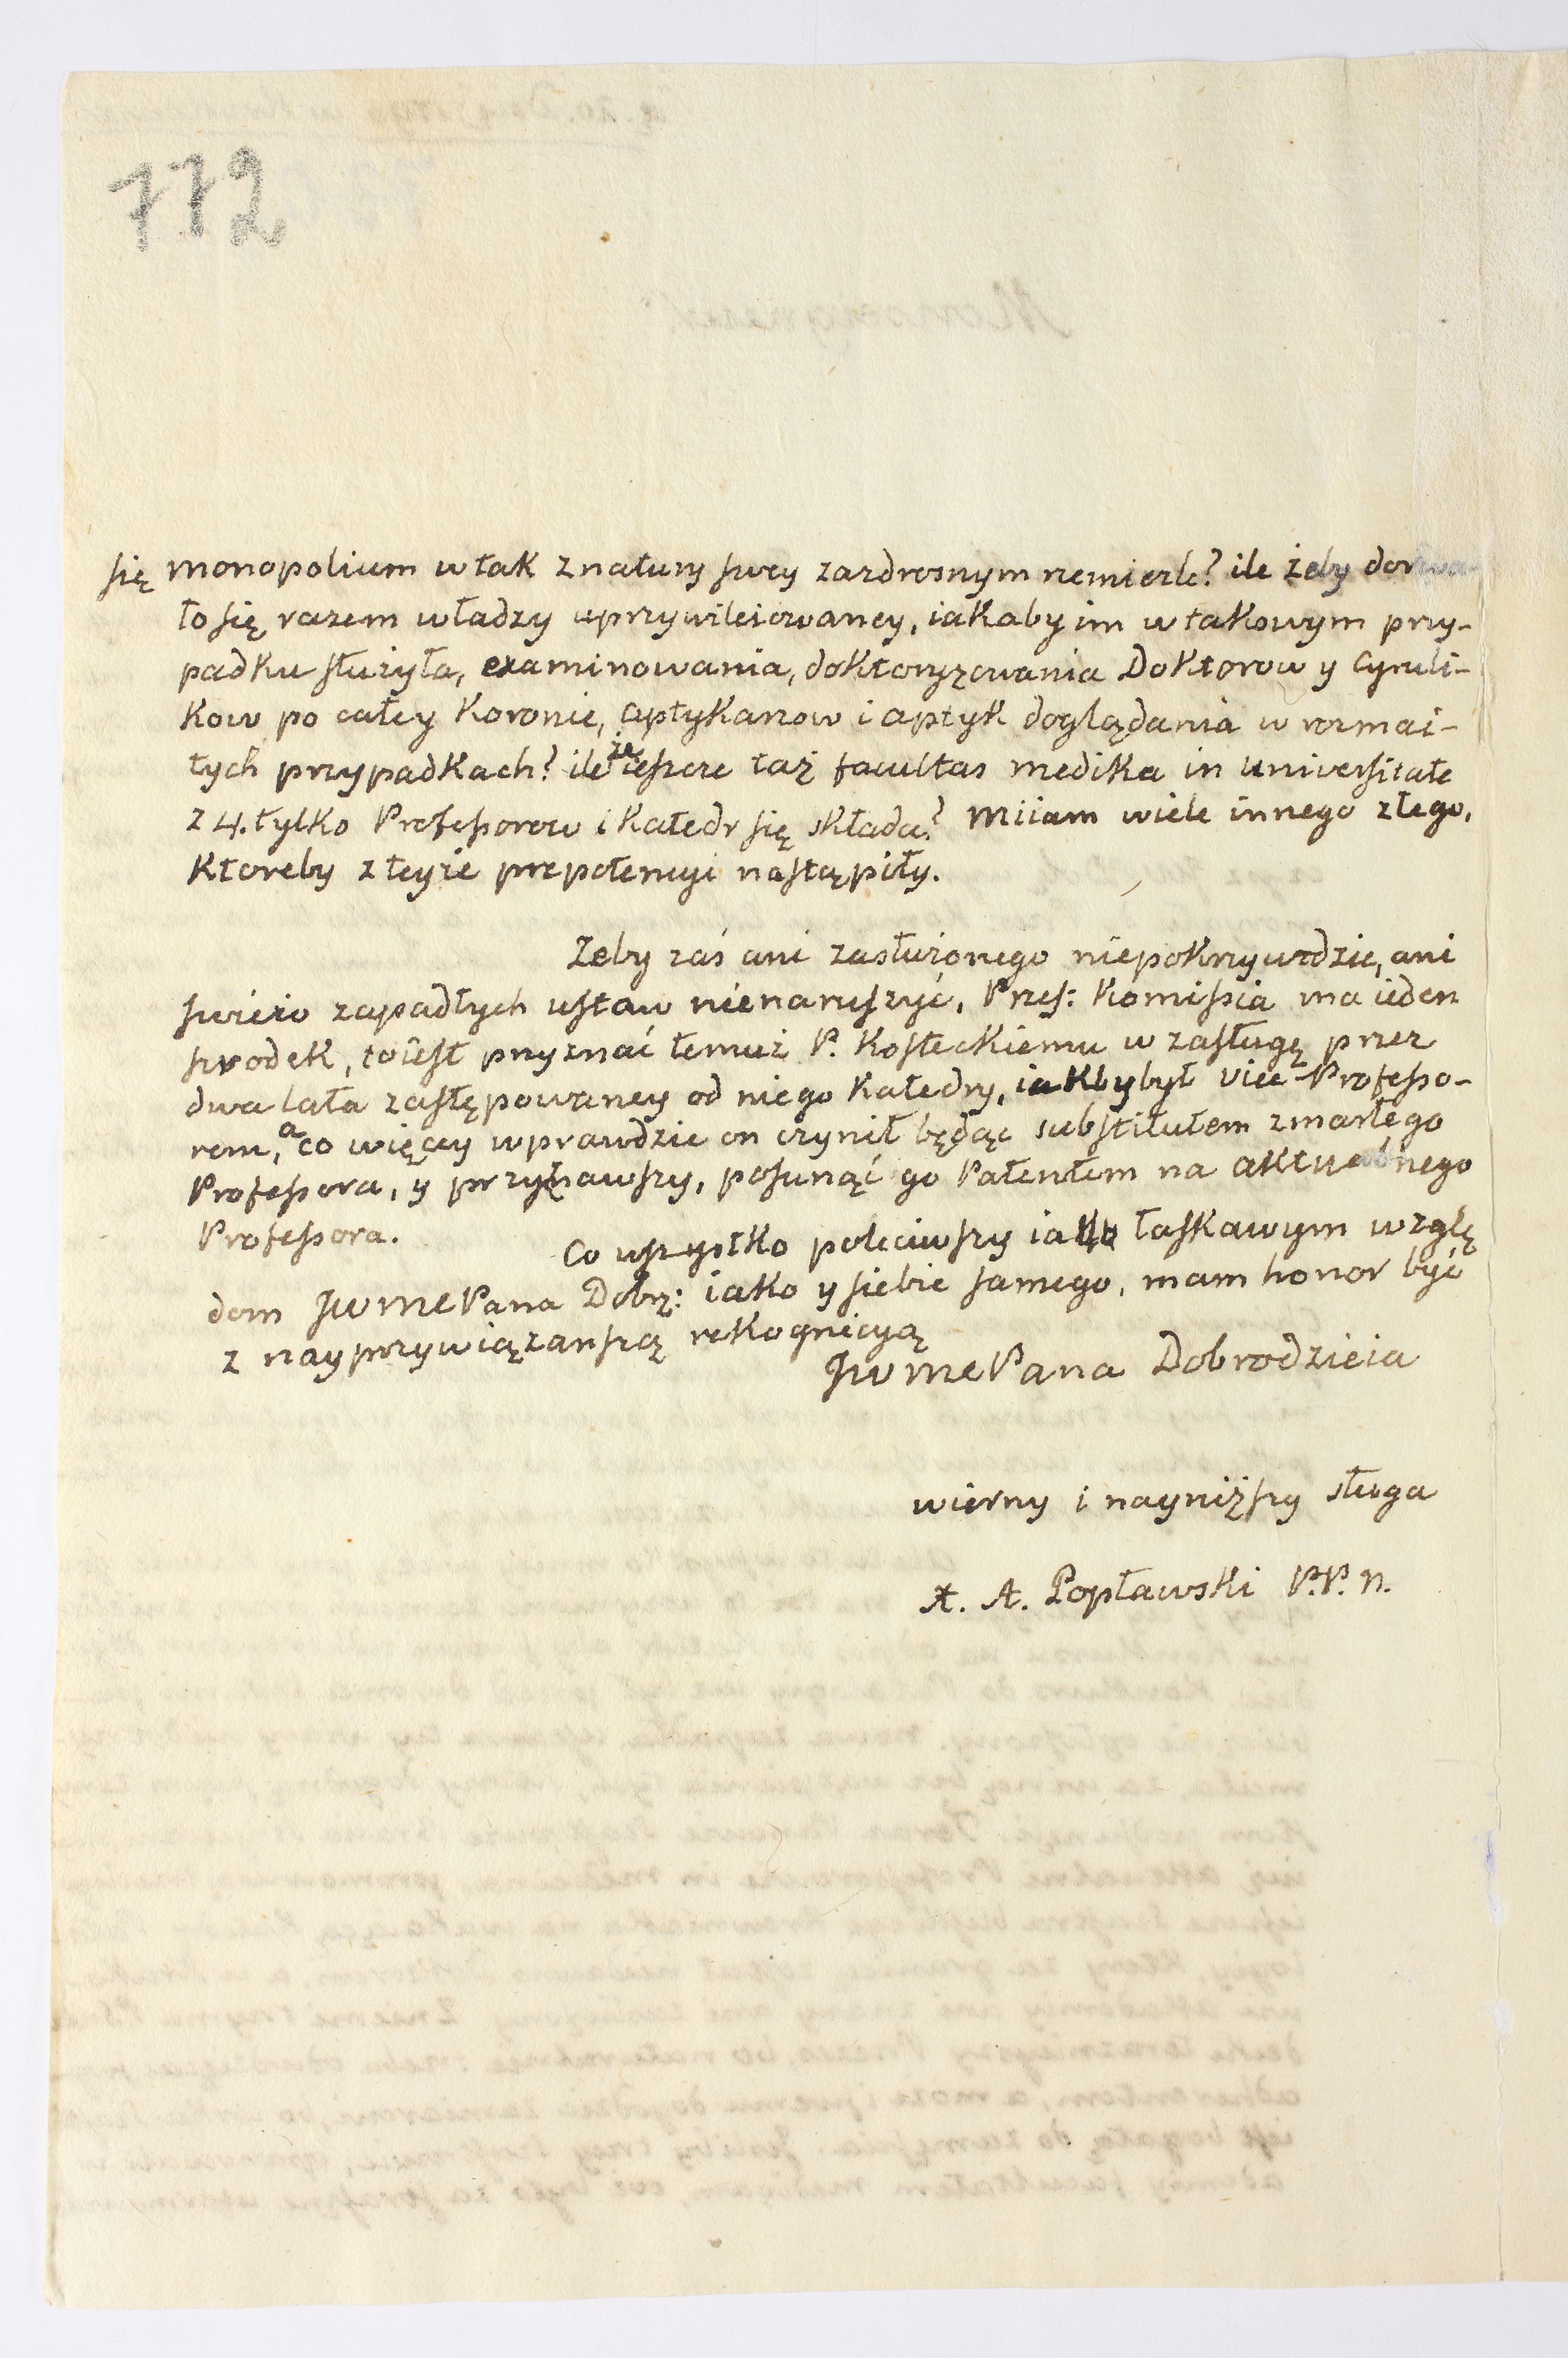 772
się monopolium w tak z natury swey zazdrosnym rzemieśle? ile żeby dorwa-
ło się razem władzy uprzywileiowaney, iakaby im w takowym przy-
padku służyła, examinowania, doktoryzowania Doktorow y Cyruli-
kow po całey Koronie, aptykarzow i aptyk doglądania w rozmai-
tych przypadkach? ile że ieszcze taż facultas medika in universitate
z 4. tylko Professorow i Katedr się składa? Miiam wiele innego złego,
ktoreby z teyże prepotencyi nastąpiły.
Zeby zaś ani zasłużonego niepokrzywdzić, ani
swieżo zapadłych ustaw nienaruszyć, Prześ: Komissia ma ieden
srodek, to iest przyznać temuż P. Kosteckiemu w zasługę przez
dwa lata zastępowaney od niego Katedry, iakby był Vice-Professo-
rem, a co więcey wprawdzie on czynił będąc substitutem zmarłego
Professora, y przyznawszy, posunąć go Patentem na aktualnego
Professora.
Co wszystko poleciwszy łaskawym wzglę
dom JWmcPana Dobrz: iako y siebie samego, mam honor być
z nayprzywiązańszą rekognicyą
JWmcPana Dobrodzieia
wierny i nayniższy sługa
X. A. Popławski P.P.N.